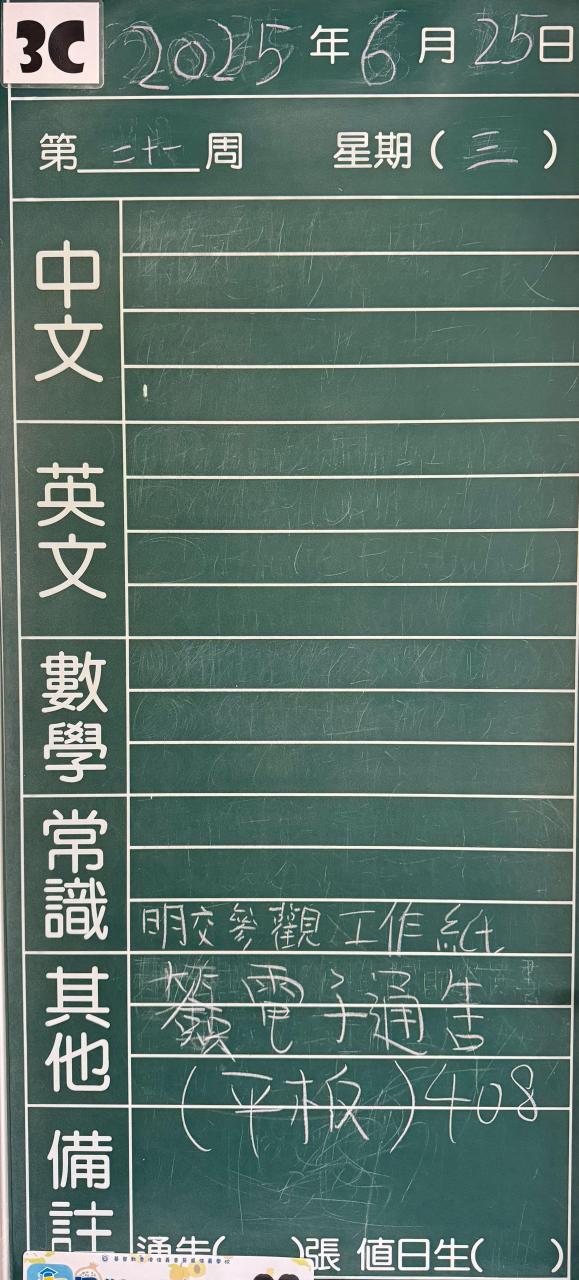 3C 2025年6月25日
第二十一周 星期(三)
中文
英文
數學
常識
明交參觀工作紙
其他
簽電子通告
(平板)408
備註
通告( )張 值日生( )